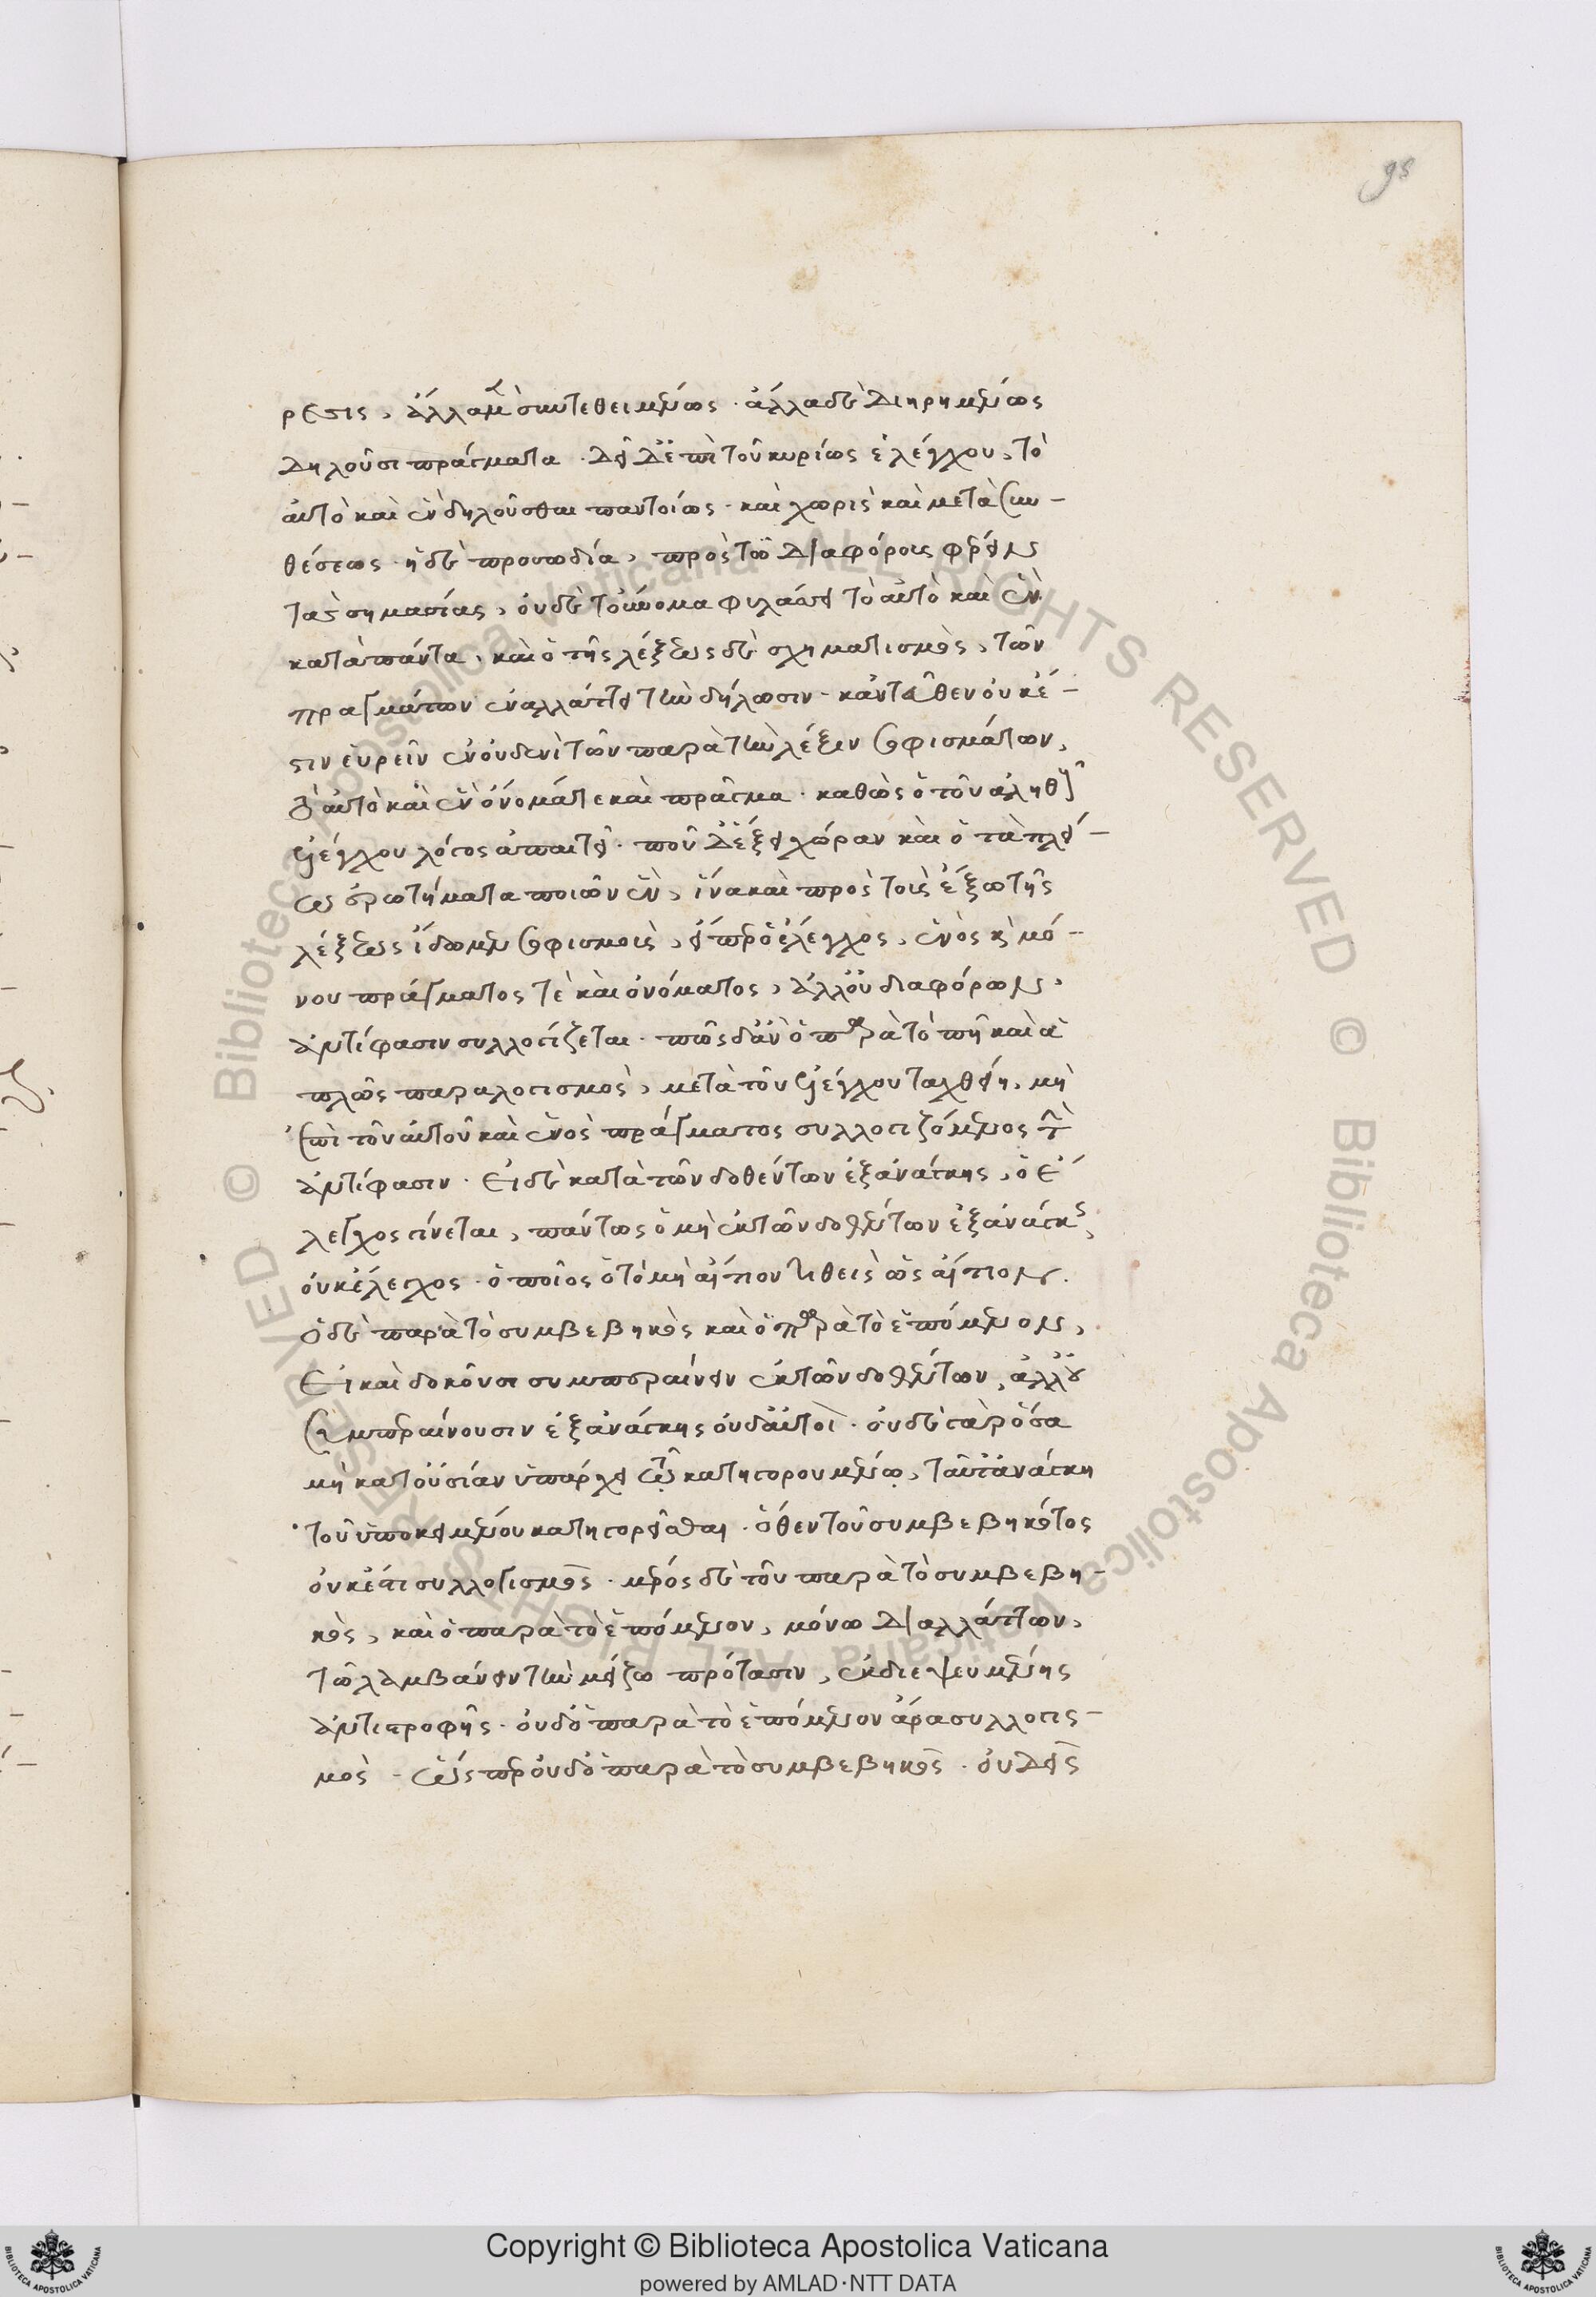 98
ρεσις, ἄλλα μὲν συντεθειμένως· ἄλλα δὲ διηρημένως
δηλοῦσι πράγματα. δεῖ δ' ἐπὶ τοῦ κυρίως ἐλέγχου, τὸ
αὐτὸ καὶ ἓν δηλοῦσθαι παντοίως· καὶ χωρὶς καὶ μετὰ συν-
θέσεως· ἡ δὲ προσωδία, πρὸς τῶ διαφόρους φέρειν
τὰς σημασίας, οὐδὲ τὸ ὄνομα φυλάττει τὸ αὐτὸ καὶ ἓν
κατὰ πάντα, καὶ ὁ τῆς λέξεως δὲ σχηματισμὸς, τῶν
πραγμάτων ἐναλλάττει τὴν δήλωσιν· κἀντεῦθεν οὐκ ἔ-
στιν εὑρεῖν ἐν οὐδενὶ τῶν παρὰ τὴν λέξιν σοφισμάτων,
τὸ αὐτὸ καὶ ἓν ὄνομά τε καὶ πρᾶγμα· καθὼς ὁ τοῦ ἀληθοῦς
ἐλέγχου λόγος ἀπαιτεῖ· ποῦ δ' ἕξει χώραν καὶ ὁ τὰ πλεί-
ω ἐρωτήματα ποιῶν ἓν, ἵνα καὶ πρὸς τοὺς ἔξω τῆς
λέξεως ἴδωμεν σοφισμοὺς, εἴπερ ὁ ἔλεγχος, ἑνὸς καὶ μό-
νου πράγματός τε καὶ ὀνόματος, ἀλλ' οὐ διαφόρων,
ἀντίφασιν συλλογίζεται· πῶς δ' ἂν ὁ παρὰ τὸ πῆ καὶ ἁ-
πλῶς παραλογισμὸς, μετὰ τοῦ ἐλέγχου ταχθείη, μὴ
ἐπὶ τοῦ αὐτοῦ καὶ ἑνὸς πράγματος συλλογιζόμενος τὴν
ἀντίφασιν. εἰ δὲ κατὰ τῶν δοθέντων ἐξ ἀνάγκης, ὁ ἔ-
λεγχος γίνεται, πάντως ὁ μὴ ἐκ τῶν δοθέντων ἐξ ἀνάγκης,
οὐκ ἔλεγχος· ὁποῖος ὁ τὸ μὴ αἴτιον τιθεὶς ὡς αἴτιον.
ὁ δὲ παρὰ τὸ συμβεβηκὸς καὶ ὁ παρὰ τὸ ἑπόμενον,
εἰ καὶ δοκοῦσι συμπεραίνειν ἐκ τῶν δοθέντων, ἀλλ' οὐ
συμπεραίνουσιν ἐξ ἀνάγκης οὐδ' αὐτοί· οὐδὲ γὰρ ὅσα
μὴ κατ' οὐσίαν ὑπάρχει τῶ κατηγορουμένω, ταῦτ' ἀνάγκη
τοῦ ὑποκειμένου κατηγορεῖσθαι· ὅθεν τοῦ συμβεβηκότος
οὐκ ἔστι συλλογισμός· μέρος δὲ τοῦ παρὰ τὸ συμβεβη-
κὸς, καὶ ὁ παρὰ τὸ ἑπόμενον, μόνω διαλλάττων,
τῶ λαμβάνειν τὴν μείζω πρότασιν, ἐκ διεψευσμένης
ἀντιστροφῆς· οὐδ' ὁ παρὰ τὸ ἑπόμενον ἄρα συλλογισ-
μὸς· ὥσπερ οὐδ' ὁ παρὰ τὸ συμβεβηκός. οὐδεὶς
Copyright © Biblioteca Apostolica Vaticana
powered by AMLAD·NTT DATA